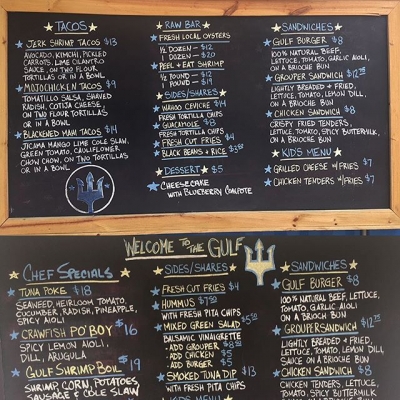 TACOS
JERK SHRIMP TACOS $13
AVOCADO, KIMCHI, PICKLED
CARROTS, LIME CILANTRO
SAUCE, ON TWO FLOUR
TORTILLAS OR IN A BOWL
MOJO CHICKEN TACOS $9
TOMATILLO SALSA, SHAVED
RADISH, COTIJA CHEESE,
ON TWO FLOUR TORTILLAS
OR IN A BOWL
BLACKENED MAHI TACOS $14
JICAMA MANGO LIME COLE SLAW,
GREEN TOMATO, CAULIFLOWER
CHOW CHOW, ON TWO TORTILLAS
OR IN A BOWL
RAW BAR
FRESH LOCAL OYSTERS
½ DOZEN - $12
1 DOZEN - $20
PEEL & EAT SHRIMP
½ POUND - $12
1 POUND - $19
SIDES/SHARES
WAHOO CEVICHE $14
FRESH TORTILLA CHIPS
GUACAMOLE $13
FRESH TORTILLA CHIPS
FRESH CUT FRIES $4
BLACK BEANS & RICE $3.50
DESSERT $5
CHEESECAKE
WITH BLUEBERRY COMPOTE
SANDWICHES
GULF BURGER $8
100% NATURAL BEEF,
LETTUCE, TOMATO, GARLIC AIOLI,
ON A BRIOCHE BUN
GROUPER SANDWICH $12.75
LIGHTLY BREADED & FRIED,
LETTUCE, TOMATO, LEMON DILL,
ON A BRIOCHE BUN
CHICKEN SANDWICH $8
CRISPY FRIED TENDERS
LETTUCE, TOMATO, SPICY BUTTERMILK,
ON A BRIOCHE BUN
KIDS MENU
GRILLED CHEESE W/FRIES $7
CHICKEN TENDERS W/FRIES $7
WELCOME TO THE GULF
CHEF SPECIALS
TUNA POKE $18
SEAWEED, HEIRLOOM TOMATO,
CUCUMBER, RADISH, PINEAPPLE,
SPICY AIOLI
CRAWFISH PO' BOY $16
SPICY LEMON AIOLI,
DILL, ARUGULA
GULF SHRIMP BOIL $19
SHRIMP, CORN, POTATOES,
SAUSAGE & COLE SLAW
SIDES/SHARES
FRESH CUT FRIES $4
HUMMUS $7.50
WITH FRESH PITA CHIPS
MIXED GREEN SALAD $5.50
BALSAMIC VINAIGRETTE
- ADD GROUPER $8
- ADD CHICKEN $5
- ADD BURGER $5
SMOKED TUNA DIP $13
WITH FRESH PITA CHIPS
KIDS MENU
SANDWICHES
GULF BURGER $8
100% NATURAL BEEF, LETTUCE,
TOMATO, GARLIC AIOLI
ON A BRIOCH BUN
GROUPER SANDWICH $12.75
LIGHTLY BREADED & FRIED,
LETTUCE, TOMATO, LEMON DILL
SAUCE ON A BRIOCHE BUN
CHICKEN SANDWICH $8
CHICKEN TENDERS, LETTUCE,
TOMATO, SPICY BUTTERMILK,
ON A BRIOCHE BUN